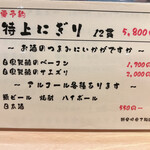 特上にぎり 12貫 5,800
～ お酒のつまみにいかがですか ～
自家製鯨のベーコン 1,900
自家製鯨のサエズリ 2,000
～ アルコール各種あります ～
瓶ビール 焼酎 ハイボール
日本酒 550円～